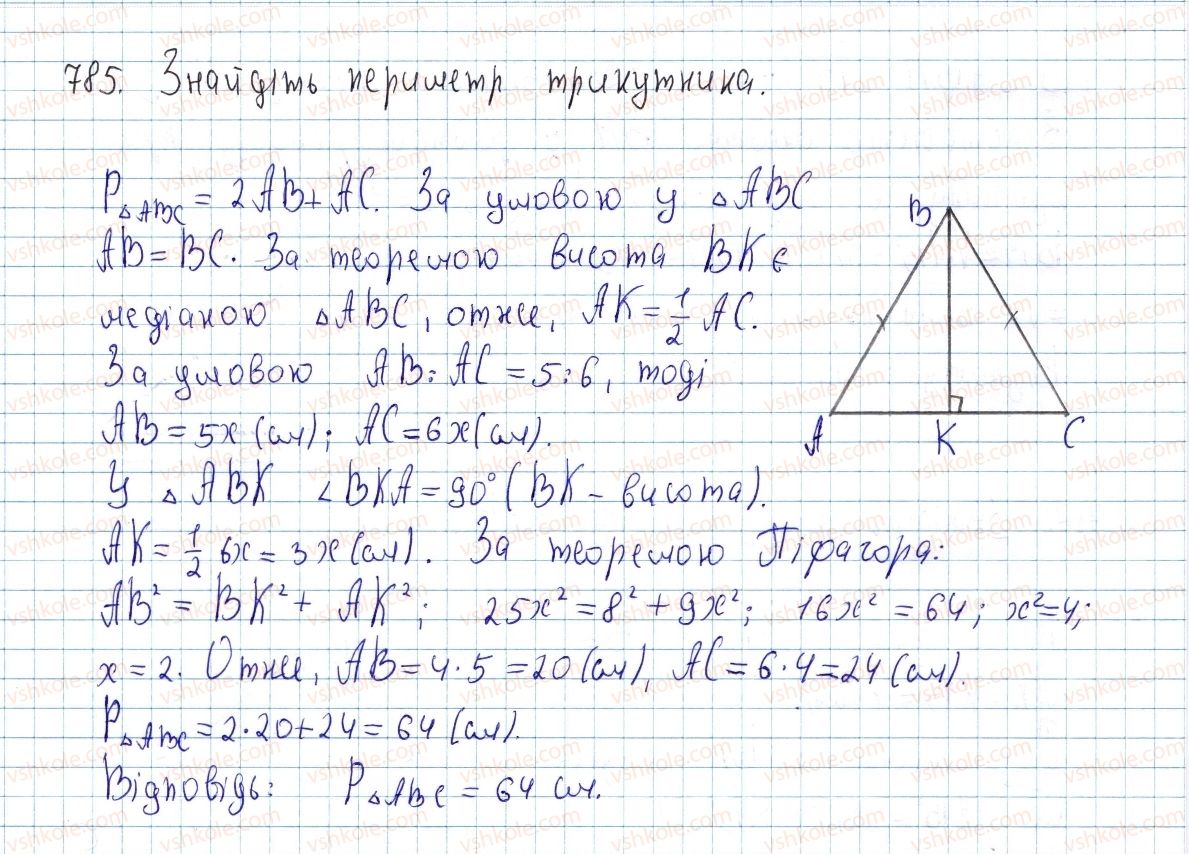 785. Знайдіть периметр трикутника.
P△ABC = 2AB + AC. За умовою у △ABC
AB = BC. За теоремою висота BK є
медіаною △ABC, отже, AK = 1/2 AC.
За умовою AB : AC = 5 : 6, тоді
AB = 5x (см); AC = 6x (см).
У △ABK ∠BKA = 90° (BK – висота).
AK = 1/2 6x = 3x (см). За теоремою Піфагора:
AB² = BK² + AK²; 25x² = 8² + 9x²; 16x² = 64; x² = 4;
x = 2. Отже, AB = 4 · 5 = 20 (см), AC = 6 · 4 = 24 (см).
P△ABC = 2 · 20 + 24 = 64 (см).
Відповідь: P△ABC = 64 см.
B
A
K
C
vshkole.com